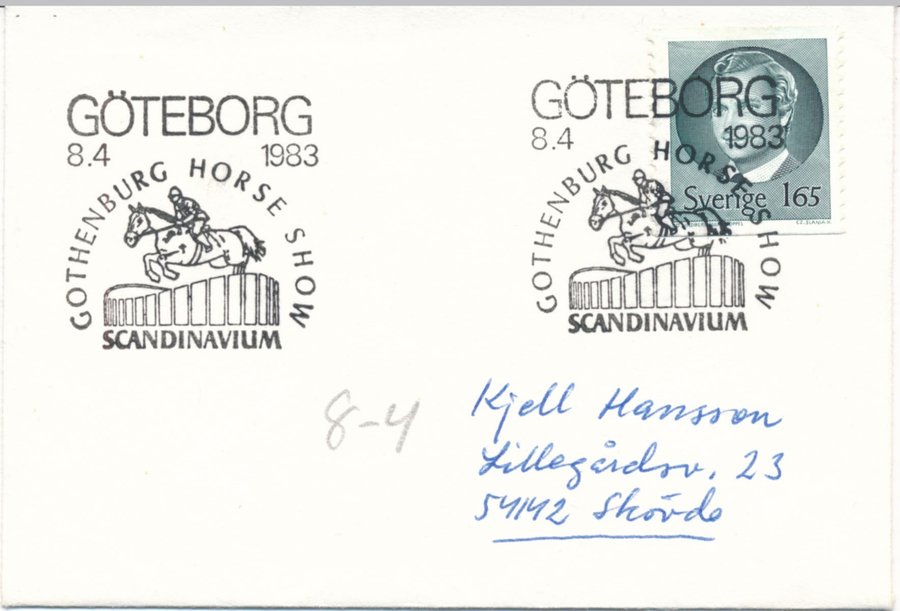 GÖTEBORG
8.4 1983
GOTHENBURG HORSE SHOW
SCANDINAVIUM
GÖTEBORG
8.4 1983
GOTHENBURG HORSE SHOW
SCANDINAVIUM
Sverige 165
8-4
Kjell Hansson
Lillegårdsv. 23
54142 Skövde